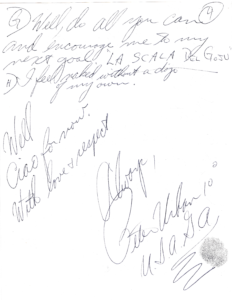 G) Will, do all you can
and encourage me to my
next goal, LA SCALA DEL GOJU
H) I feel naked without a dojo
of my own.
Will
Ciao for now.
With love & respect
Always,
Peter Urban 10°
USA GA